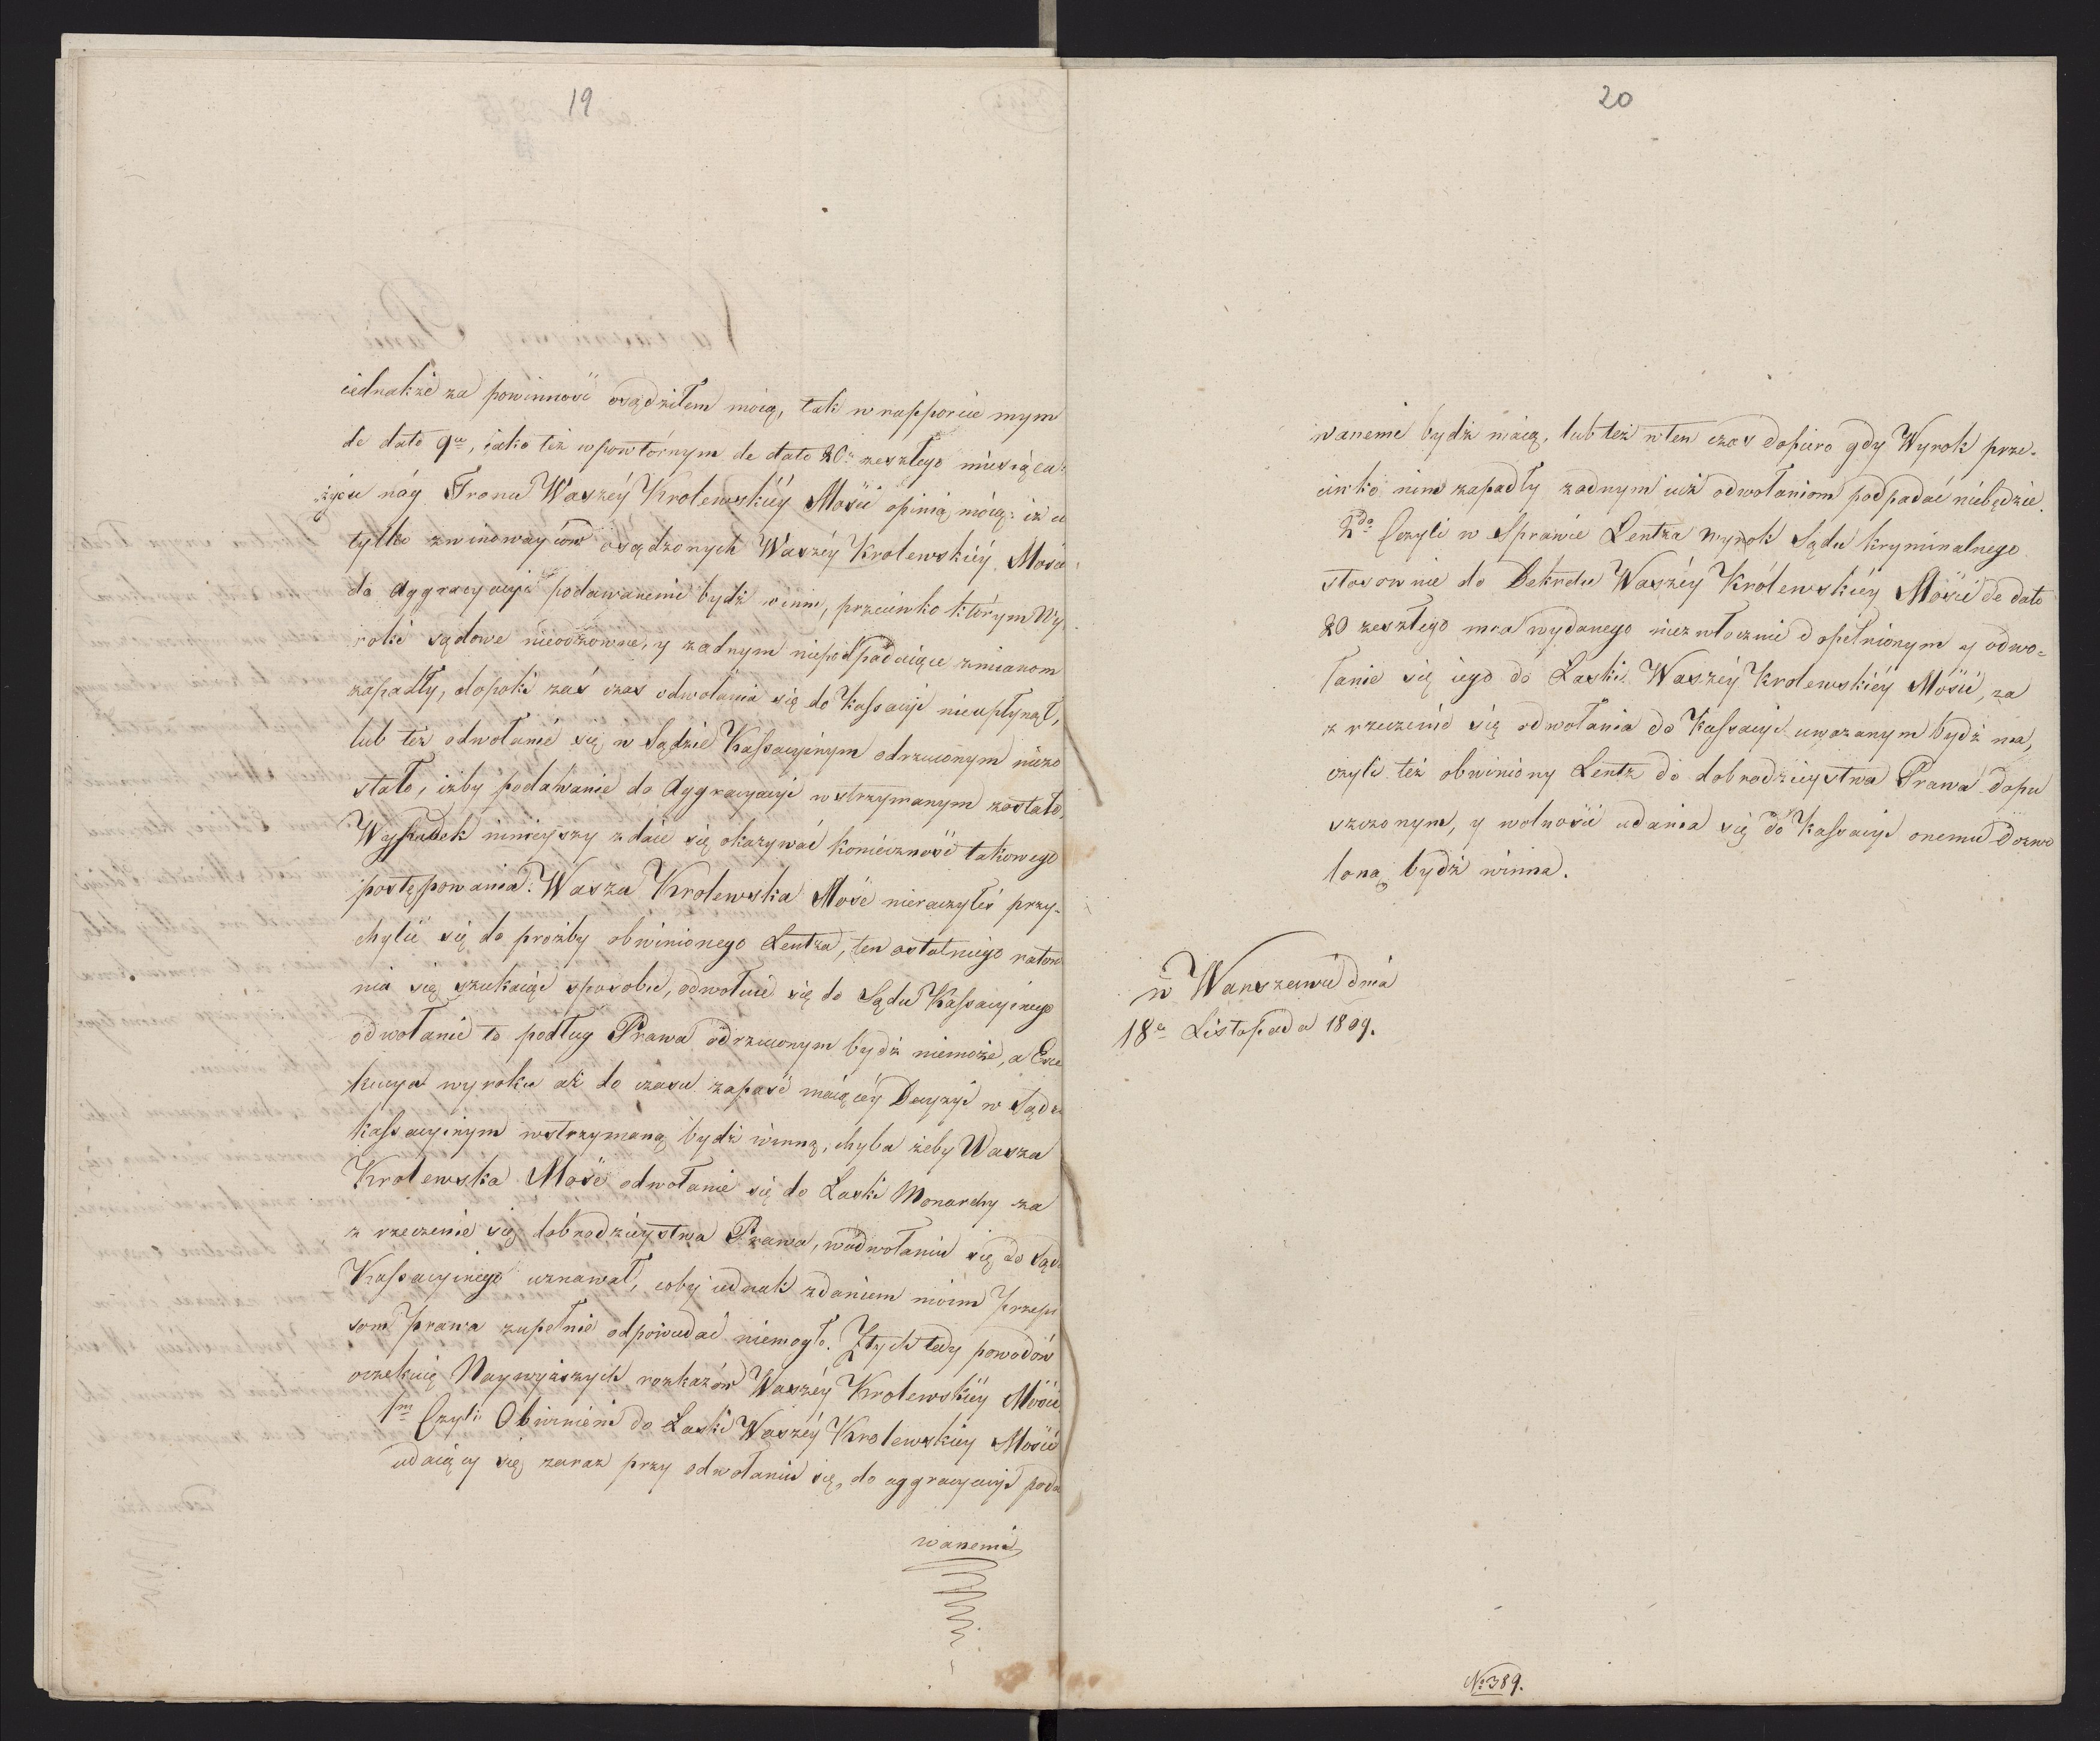 19
iednakże za powinność osądziłem moię, tak w rapporcie mym
de dato 9ª, iako też w powtórnym de dato 20ª zeszłego miesiąca
u náy Tronu Waszéy Krolewskiéy Mości opinią moię: iż ci
tylko z winowayców osądzonych Waszéy Krolewskiéy Mości
do Aggracyacyi podawanemi bydź winni, przeciwko którym Wy
roki sądowe nieodzowne, y żadnym niepodpadaiące zmianom
zapadły, dopoki zaś czas odwołania się do Kassacyi nieupłynął,
lub też odwołanie się w Sądzie Kassacyinym odrzuconym niezo
stało, iżby podawanie do Aggracyacyi wstrzymanym zostało.
Wypadek ninieyszy zdaie się okazywać konieczność takowego
postępowania: Wasza Krolewska Mość nieraczyłeś przy-
chylić się do prożby obwinionego Lentza, ten ostatniego ratow
nia się szukaiąc sposobu, odwołuie się do Sądu Kassacyinego
odwołanie to podług Prawa odrzuconym bydź niemoże, a Exe
kucya wyroku aż do czasu zapaść maiącéy Decyzyi w Sądz
kassacyinym wstrzymaną bydź winna, chyba żeby Wasza
Krolewska Mość odwołanie się do Łaski Monarchy za
zrzeczenie się dobrodzieystwa Prawa, w odwołaniu się do Sąd
Kassacyinego uznawał, coby iednak zdaniem moim Przepi
som Prawa zupełnie odpowiadać niemogło. Z tych tedy powodów
oczekuię Naywyższych rozkazów Waszéy Krolewskiéy Mości
1m Czyli Obwinieni do Łaski Waszéy Krolewskiey Mości
udaiący się zaraz przy odwołaniu się, do aggracyacyi poda
wanemi
20
wanemi bydź maią, lub też w ten czas dopiero gdy Wyrok prze-
ciwko nim zapadły żadnym iuż odwołaniom podpadać niebędzie.
2do Czyli w Sprawie Lentza wyrok Sądu kryminalnego
stosownie do Dekretu Waszéy Królewskiéy Mości de dato
20 zeszłego mca wydanego niezwłocznie dopełnionym y odwo-
łanie się iego do Łaski Waszéy Krolewskiéy Mości, za
zrzeczenie się odwołania do Kassacyi uważanym bydź ma,
czyli też obwiniony Lentz do dobrodzieystwa Prawa dopu
szczonym, y wolność udania się do Kassacyi onemu dozwo
loną bydź winna.
w Warszawie dnia
18ª Listopada 1809.
No 389.